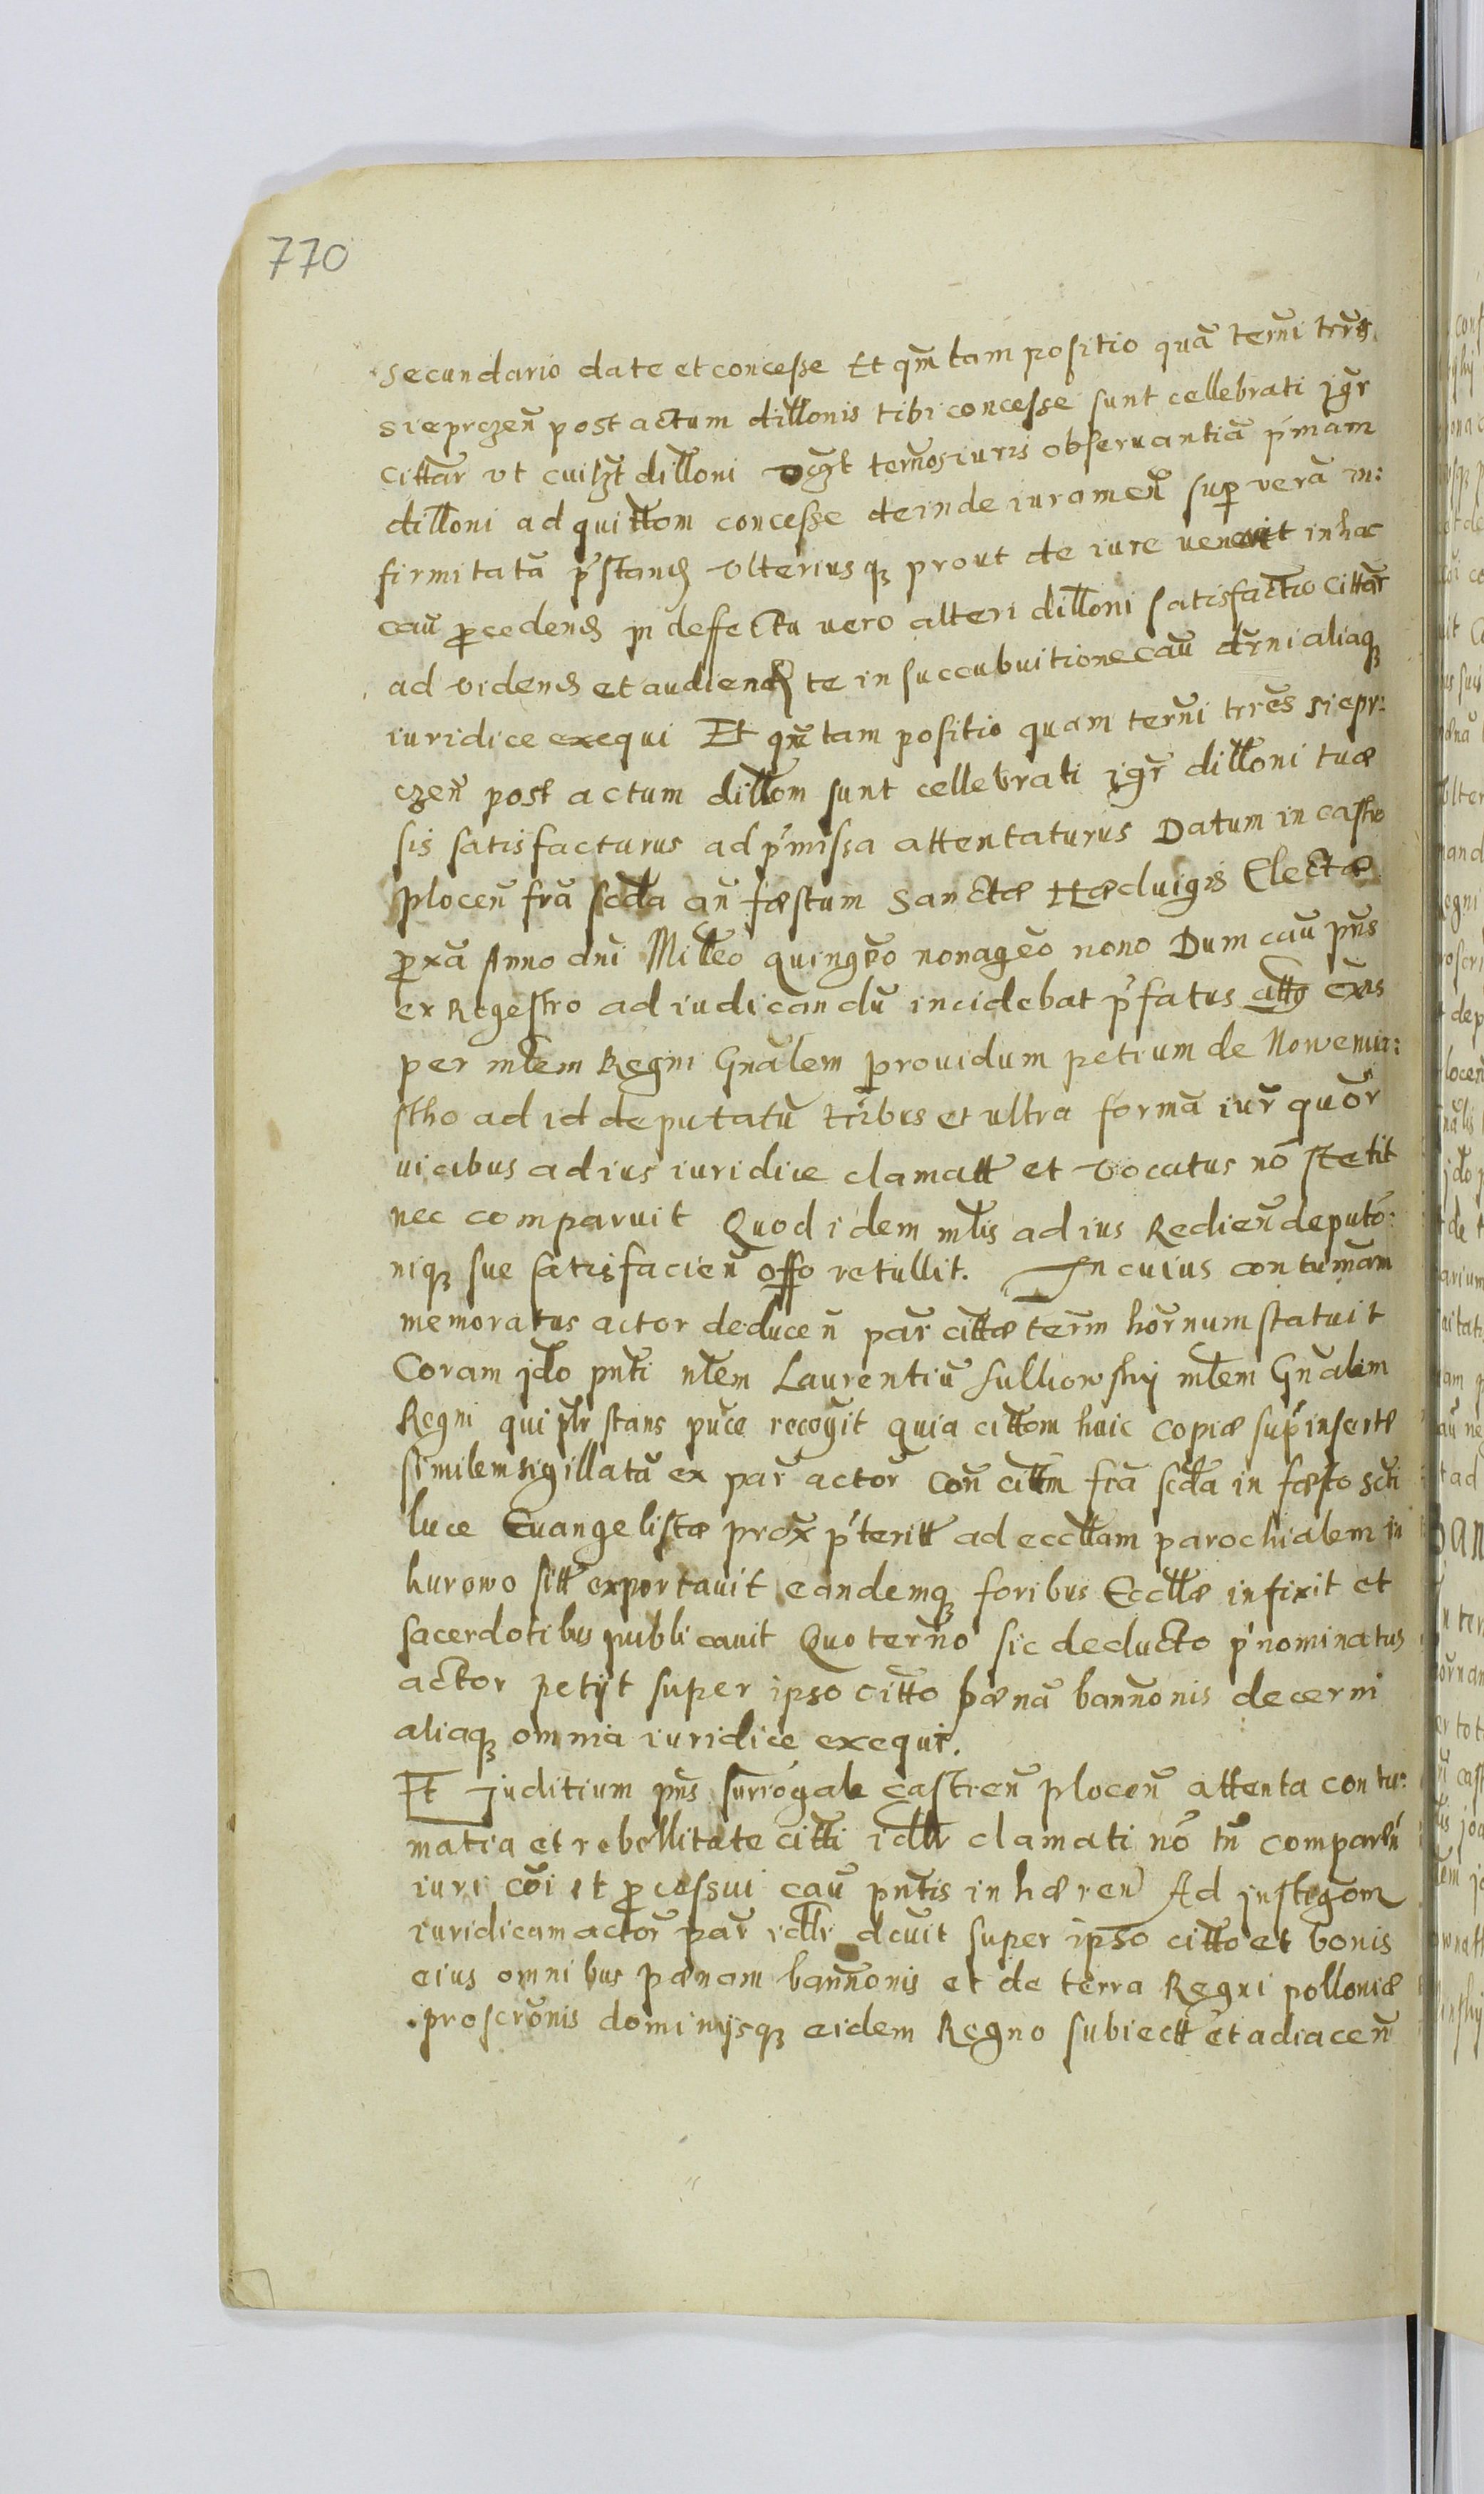 770
secundario date et concesse Et qm̃ tam positio quã terñi trr̃s
siepr̨czeñ post actum dillõnis tibi concesse sunt cellebrati jgr̃
cittãr vt dillõni terños iuris obseruantiã p'mam
dillõni ad quittõm concesse deinde iurameñ sup verã in:
firmitatã p'stand̨ vlteriusq̨ prout de iure venerit in hac
caũ pcedend̨ jn deffectu uero alteri dillõni satisfactio cittãr
ad videnð et audiend te in succubuitione caũ dẽrni aliaq̨
iuridice exequi Et qm̃ tam positio quam terñi trr̃es siepr:
czeñ post actum dillõm sunt cellebrati jgr̃ dillõni tuæ
sis satisfacturus ad p'missa attentaturus Datum in castro
Ploceñ frã scđa añ fæstum Sanctæ Hæduigis Electæ
pxã Anno dñi Milleõ quingẽo nonagẽo nono Dum caũ pñs
ex Regestro ad iudicandũ incidebat p'fatus cittꝰ
per mlẽm Regni Gnãlem prouidum petrum de Nowemia:
stho ad id deputatũ tribus et ultra formã iur̃ quõr
uicibus ad ius iuridice clamatt et vocatus nõ stetit
nec comparuit Quod idem mlĩs ad ius Redieñ deputõ:
niq̨ sue satisfacieñ offõ retullit. In cuius contumãm
memoratus actor deduceñ par̃ cittæ term̃ hor̃num statuit
Coram jdõ pnti mlẽm Laurentiũ Sulkowsky mlẽm Gnãlem
Regni qui plr̃ stans recogit quia cittõm huic copiæ sup'insertæ
similem sigillatã ex par̃ actor̃ coñ citt̃m frã scđa in fæsto scti
luce Euangelistæ prox̃ p'teritt ad eccllãm parochialem in
kurowo sitt exportauit eandemq̨ foribus Eccllæ infixit et
sacerdotibus publicauit Quo terño sic deducto p'nominatus
actor petijt super ipso cittõ pænã bannõnis decerni
aliaq̨ omnia iuridice exequi.
Et Juditium pñs surrogatt castreñ Ploceñ attenta contu:
matia et rebellitate citti clamati nõ tñ compareñ
iuri cõi et pcessui caũ pntĩs inhæreñ Ad jnstigõm
iuridicam actor̃ par̃ dcuit super ipso cittõ et bonis
eius omnibus pænam bannõnis et de terra Regni polloniæ
proscrõnis dominijsq̨ eidem Regno subiectt et adiaceñ